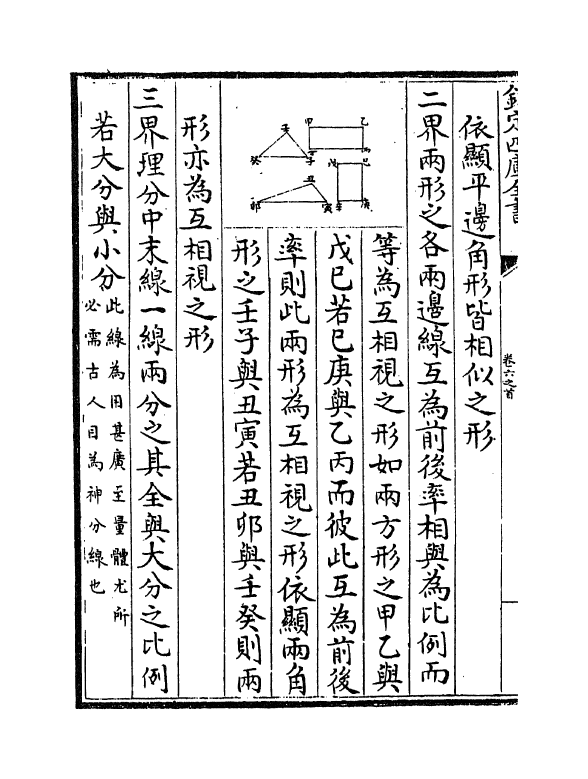 欽定四庫全書
卷六之首
依顯平邊角形皆相似之形
二界兩形之各兩邊線互為前後率相與為比例而
等為互相視之形如兩方形之甲乙與
戊已若已庚與乙丙而彼此互為前後
率則此兩形為互相視之形依顯兩角
形之壬子與丑寅若丑卯與壬癸則兩
乙
甲
丙
已
戊
庚
辛
壬
子
癸
丑
寅
卯
形亦為互相視之形
三界理分中末線一線兩分之其全與大分之比例
若大分與小分
此線為用甚廣至量體尤所
必需古人目為神分線也